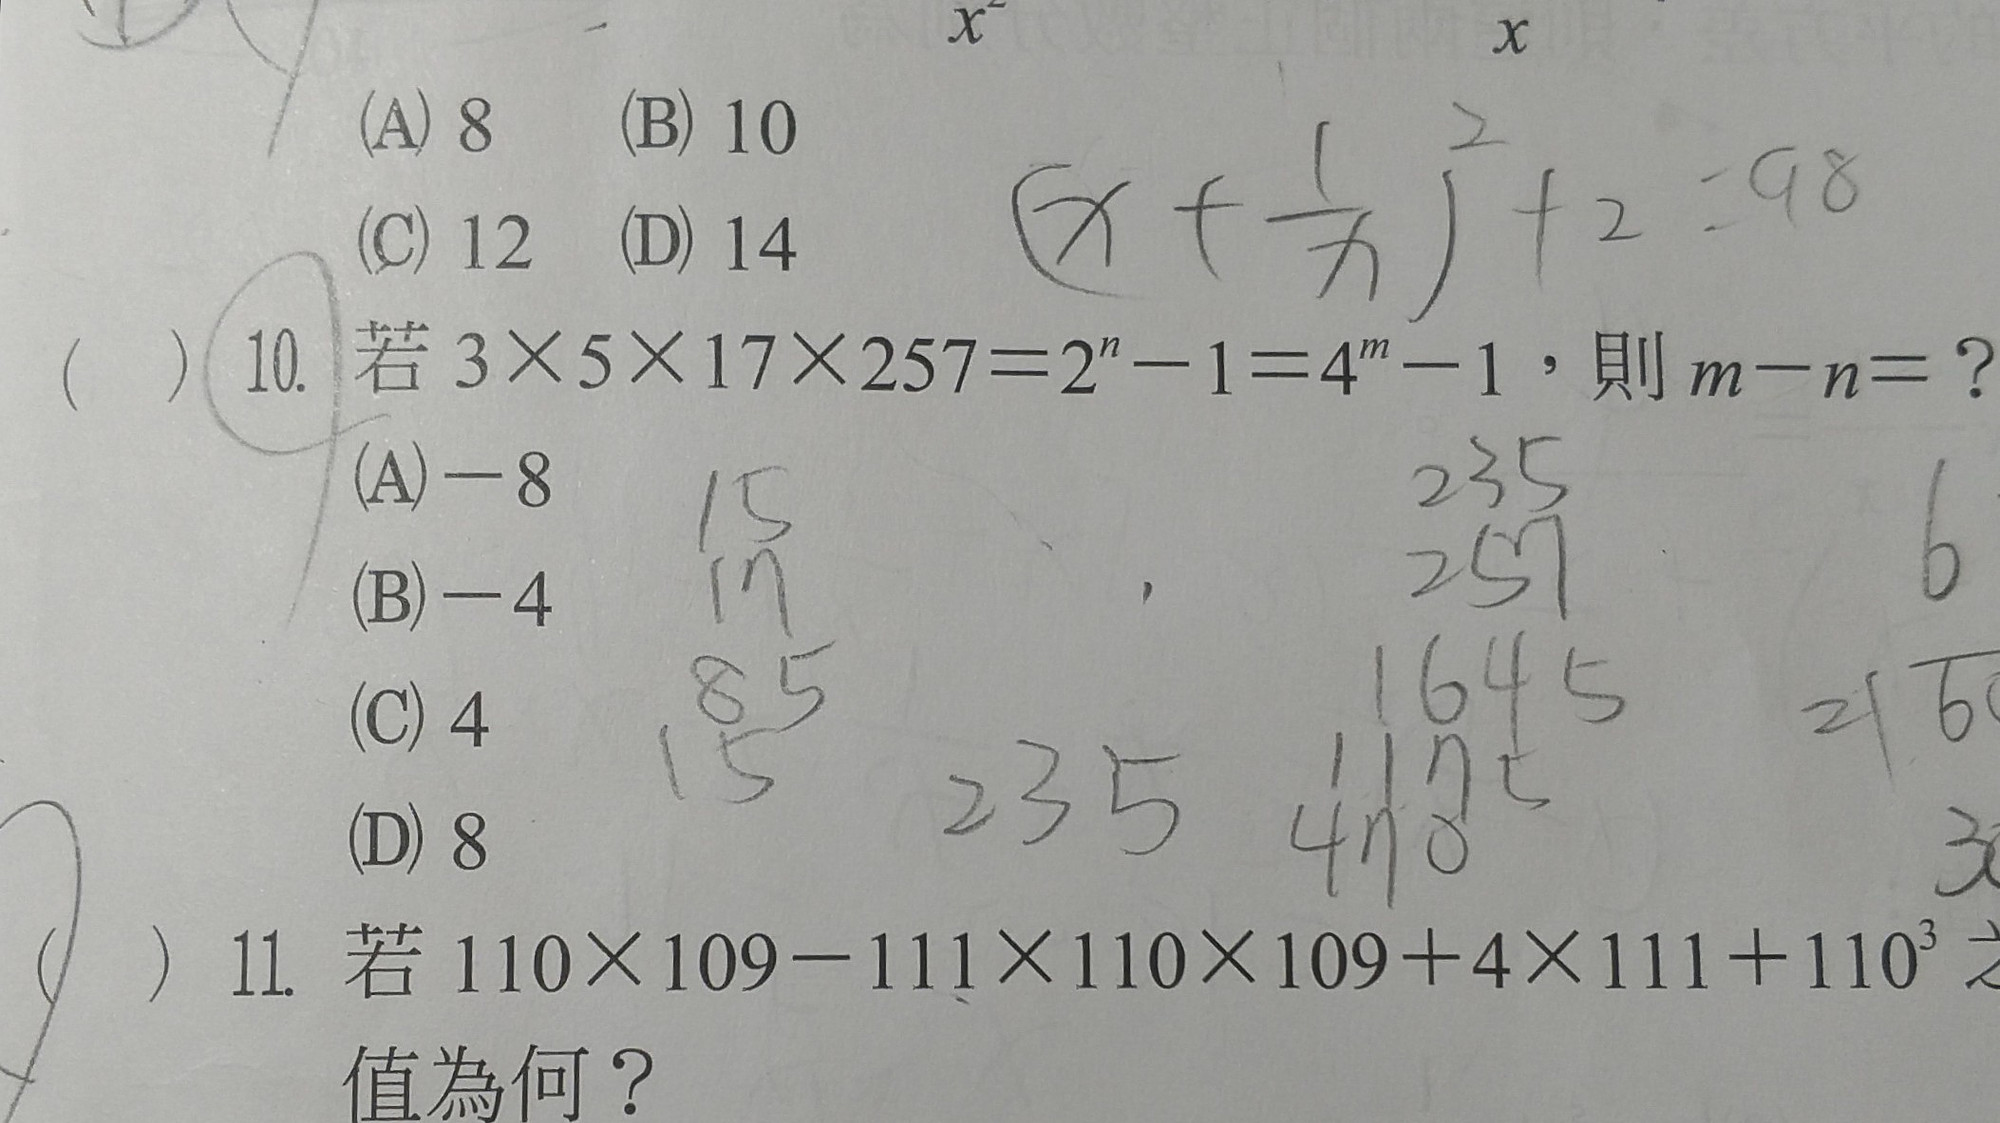 x² x
(A) 8 (B) 10
(x + 1/x)² + 2 = 98
(C) 12 (D) 14
( ) 10. 若 3×5×17×257=2ⁿ-1=4ᵐ-1，則 m-n=？
(A) -8
15
17
85
15
235
235
257
1645
1175
470
6
(B) -4
(C) 4
(D) 8
( ) 11. 若 110×109-111×110×109+4×111+110³
值為何？